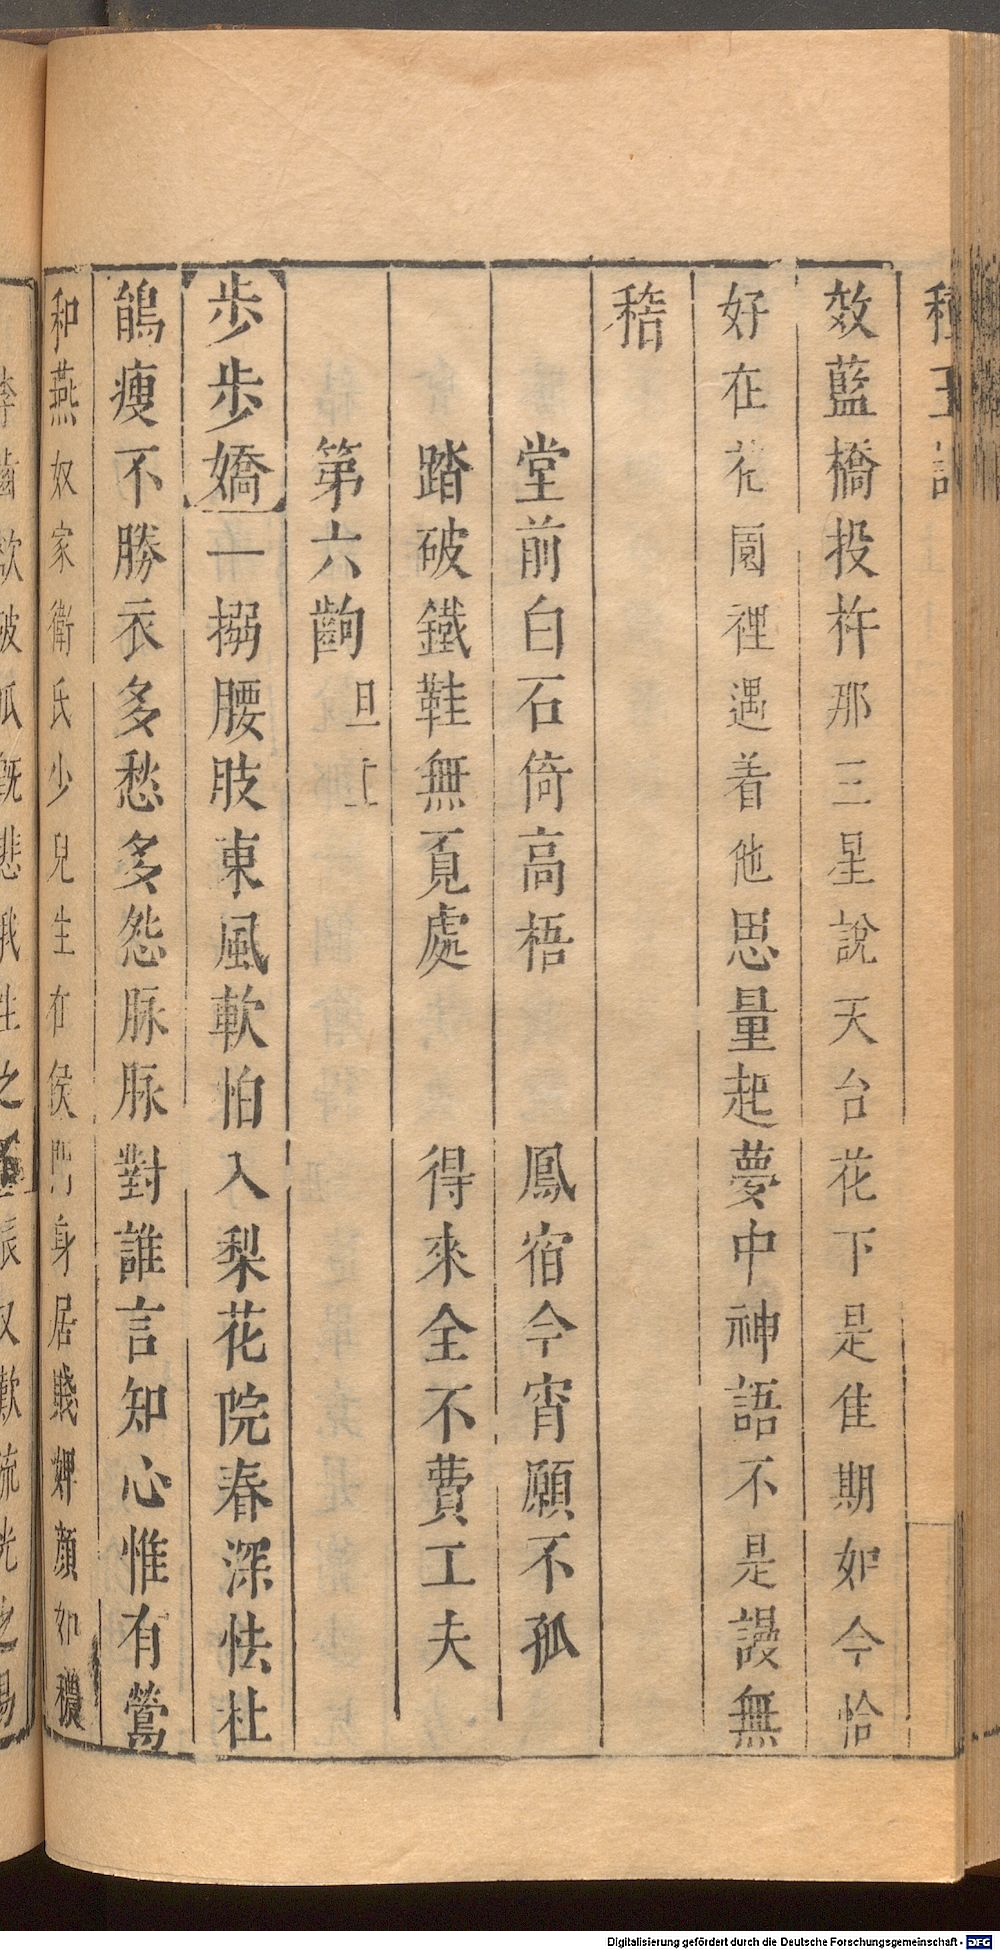 種玉記
效藍橋投杵那三星說天台花下是佳期如今恰
好在花園裡遇着他思量起夢中神語不是謾無
稽
堂前白石倚高梧 鳳宿今宵願不孤
踏破鐵鞋無覔處 得來全不費工夫
第六齣 旦上
步步嬌一搦腰肢東風軟怕入梨花院春深怯杜
鵑瘦不勝衣多愁多怨脉脉對誰言知心惟有鶯
和燕奴家衛氏少兒生在侯門身居賤婢顏如穠
李齒欲破瓜旣悲我生之 辰又歎流光之易
Digitalisierung gefördert durch die Deutsche Forschungsgemeinschaft - DFG